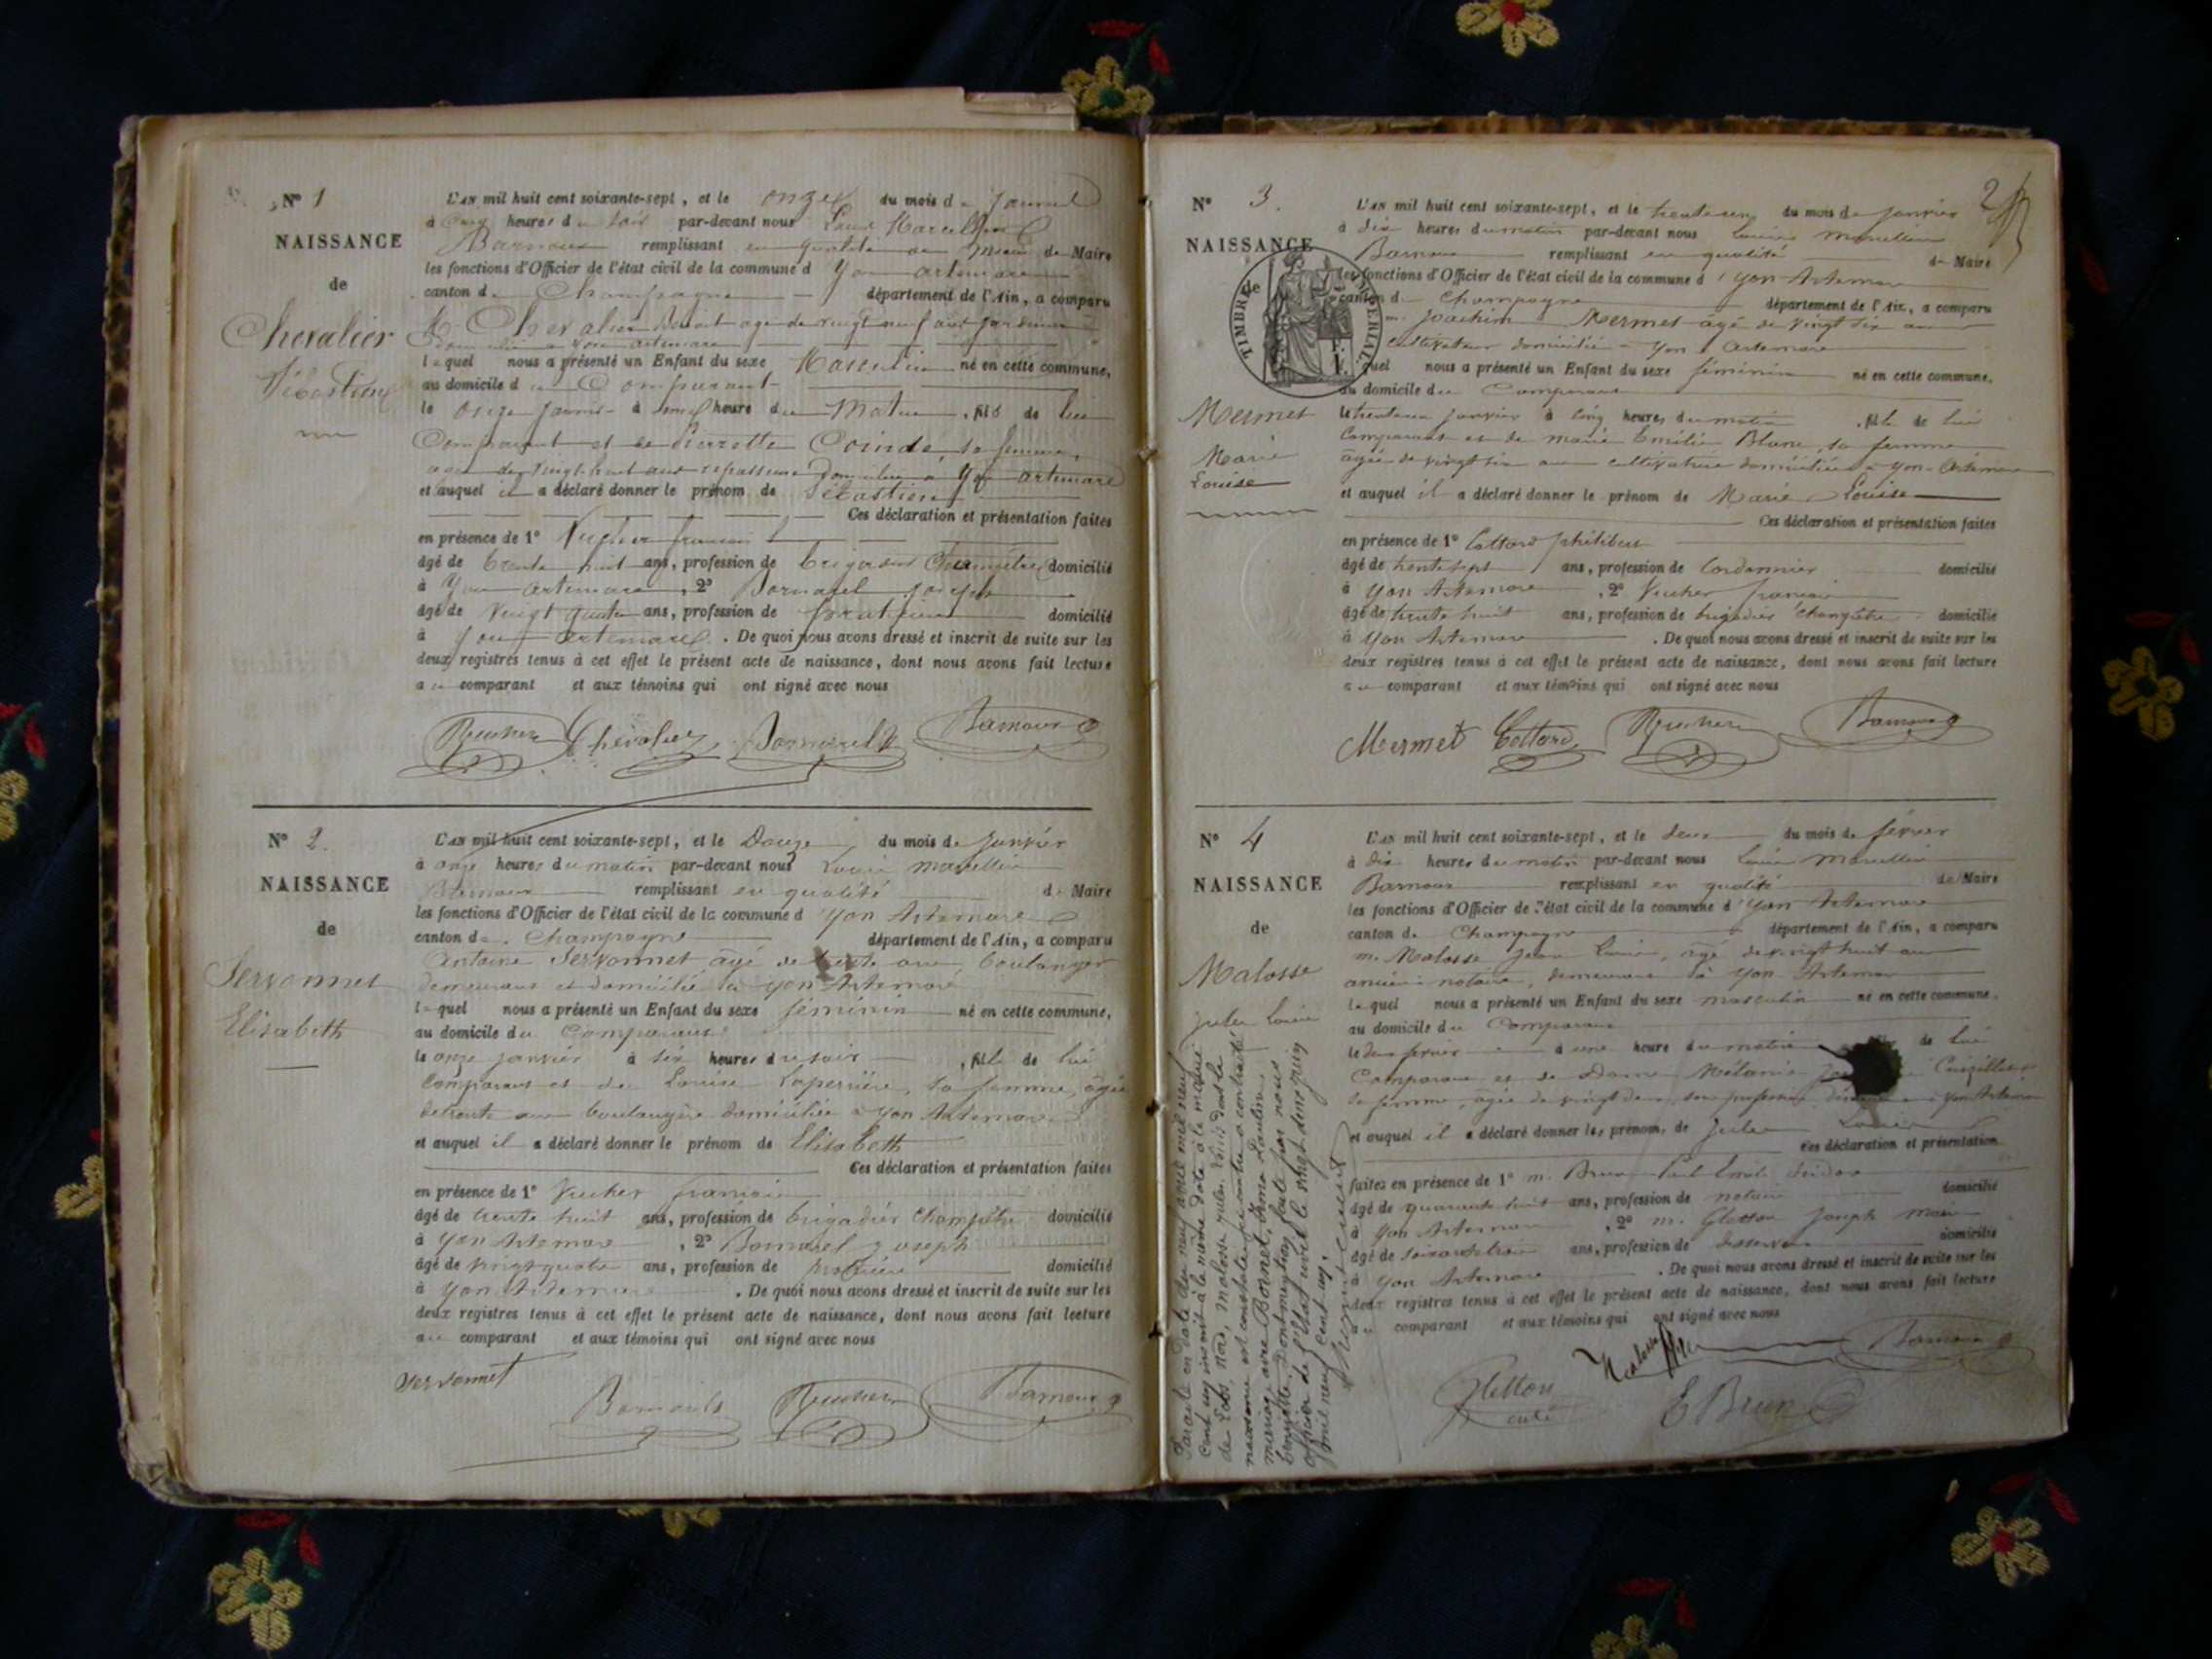 N° 1
NAISSANCE
de
Chevalier
Sébastien
L'AN mil huit cent soixante-sept, et le onze du mois de Janvier
à cinq heures du soir par-devant nous Louis Marcellin
Barnoux remplissant en qualité de Maire
les fonctions d'Officier de l'état civil de la commune d'Yon artemare
canton de Champagne département de l'Ain, a comparu
Chevalier Benoit agé de vingt neuf ans
domicilié a Yon artemare
lequel nous a présenté un Enfant du sexe Masculin né en cette commune,
au domicile du Comparant
le onze janvier à heure du Matin, fils de lui
Comparant et de Pierrette Coinde, sa femme,
agée de vingt-huit ans repasseuse domiciliée a Yon artemare
et auquel il a déclaré donner le prénom de Sébastien
Ces déclaration et présentation faites
en présence de 1° Vucher francois
âgé de trente huit ans, profession de brigadier Champêtre domicilié
à Yon artemare, 2° Bornarel Joseph
âgé de vingt quatre ans, profession de domicilié
à Yon artemare. De quoi nous avons dressé et inscrit de suite sur les
deux registres tenus à cet effet le présent acte de naissance, dont nous avons fait lecture
au comparant et aux témoins qui ont signé avec nous
Vucher Chevalier Bornarel Barnoux
N° 2.
NAISSANCE
de
Servonnet
Elisabeth
L'AN mil huit cent soixante-sept, et le Douze du mois de Janvier
à onze heures du matin par-devant nous Louis Marcellin
Barnoux remplissant en qualité de Maire
les fonctions d'Officier de l'état civil de la commune d'Yon Artemare
canton de Champagne département de l'Ain, a comparu
Antoine Servonnet âgé de trente ans, boulanger
demeurant et domicilié à Yon Artemare
lequel nous a présenté un Enfant du sexe féminin né en cette commune,
au domicile du Comparant
le onze janvier à six heures du soir, fille de lui
Comparant et de Louise Laperrière, sa femme, âgée
de trente ans boulangère domiciliée à Yon Artemare
et auquel il a déclaré donner le prénom de Elisabeth
Ces déclaration et présentation faites
en présence de 1° Vucher francois
âgé de trente huit ans, profession de brigadier Champêtre domicilié
à Yon Artemare, 2° Bornarel Joseph
âgé de vingt quatre ans, profession de domicilié
à Yon Artemare. De quoi nous avons dressé et inscrit de suite sur les
deux registres tenus à cet effet le présent acte de naissance, dont nous avons fait lecture
au comparant et aux témoins qui ont signé avec nous
Servonnet
Bornarel Vucher Barnoux
2
N° 3.
NAISSANCE
de
TIMBRE IMPERIAL
Mermet
Marie
Louise
L'AN mil huit cent soixante-sept, et le trente un du mois de Janvier
à dix heures du matin par-devant nous Louis Marcellin
Barnoux remplissant en qualité de Maire
les fonctions d'Officier de l'état civil de la commune d'Yon Artemare
canton de Champagne département de l'Ain, a comparu
m. Joachim Mermet âgé de vingt six ans
Cultivateur domicilié à Yon Artemare
lequel nous a présenté un Enfant du sexe féminin né en cette commune,
au domicile du Comparant
le trente un janvier à cinq heures du matin, fille de lui
Comparant et de marie Emilie Blanc, sa femme
âgée de vingt six ans cultivatrice domiciliée à Yon-Artemare
et auquel il a déclaré donner le prénom de Marie Louise
Ces déclaration et présentation faites
en présence de 1° Cottard philibert
âgé de trente sept ans, profession de Cordonnier domicilié
à Yon Artemare, 2° Vucher francois
âgé de trente huit ans, profession de brigadier Champêtre domicilié
à Yon Artemare. De quoi nous avons dressé et inscrit de suite sur les
deux registres tenus à cet effet le présent acte de naissance, dont nous avons fait lecture
au comparant et aux témoins qui ont signé avec nous
Mermet Cottard Vucher Barnoux
N° 4
NAISSANCE
de
Malosse
Jules Louis
L'AN mil huit cent soixante-sept, et le deux du mois de février
à dix heures du matin par-devant nous Louis Marcellin
Barnoux remplissant en qualité de Maire
les fonctions d'Officier de l'état civil de la commune d'Yon Artemare
canton de Champagne département de l'Ain, a comparu
m. Malosse Jean Louis, âgé de vingt huit ans
ancien notaire, demeurant à Yon Artemare
lequel nous a présenté un Enfant du sexe masculin né en cette commune,
au domicile du Comparant
le deux février à une heure du matin de lui
Comparant et de Dame Mélanie
sa femme, âgée de vingt deux, sans profession, Yon Artemare
et auquel il a déclaré donner les prénoms de Jules Louis
Ces déclaration et présentation
faites en présence de 1° m. Brun Paul Emile
âgé de quarante huit ans, profession de notaire domicilié
à Yon Artemare, 2° m. Gletton Joseph marie
âgé de soixante trois ans, profession de desservant domicilié
à Yon Artemare. De quoi nous avons dressé et inscrit de suite sur les
deux registres tenus à cet effet le présent acte de naissance, dont nous avons fait lecture
au comparant et aux témoins qui ont signé avec nous
Malosse Barnoux
Gletton
curé
E Brun
Par acte en date du neuf mil neuf
cent un inscrit à la même date à la mairie
de Malosse Jules Louis dont la
naissance est constatée ci contre a contracté
mariage avec Bonnet,
dont mention faite par nous
officier de l'état civil le vingt cinq juin
mil neuf cent un.